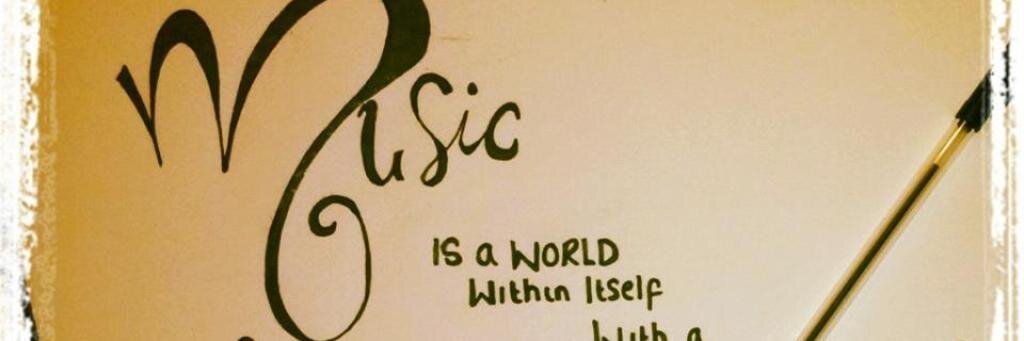 Music
IS a WORLD
Within Itself
With a